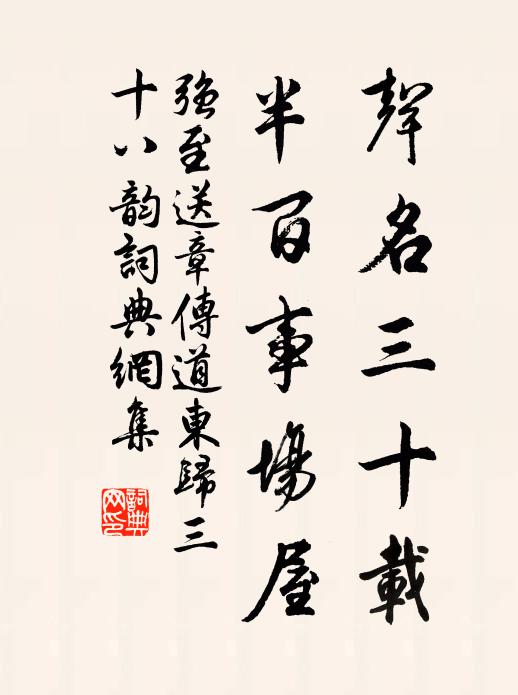 聲名三十載
半百事場屋
強至送章傳道東歸三
十八韵詞典網集
詞典
网印